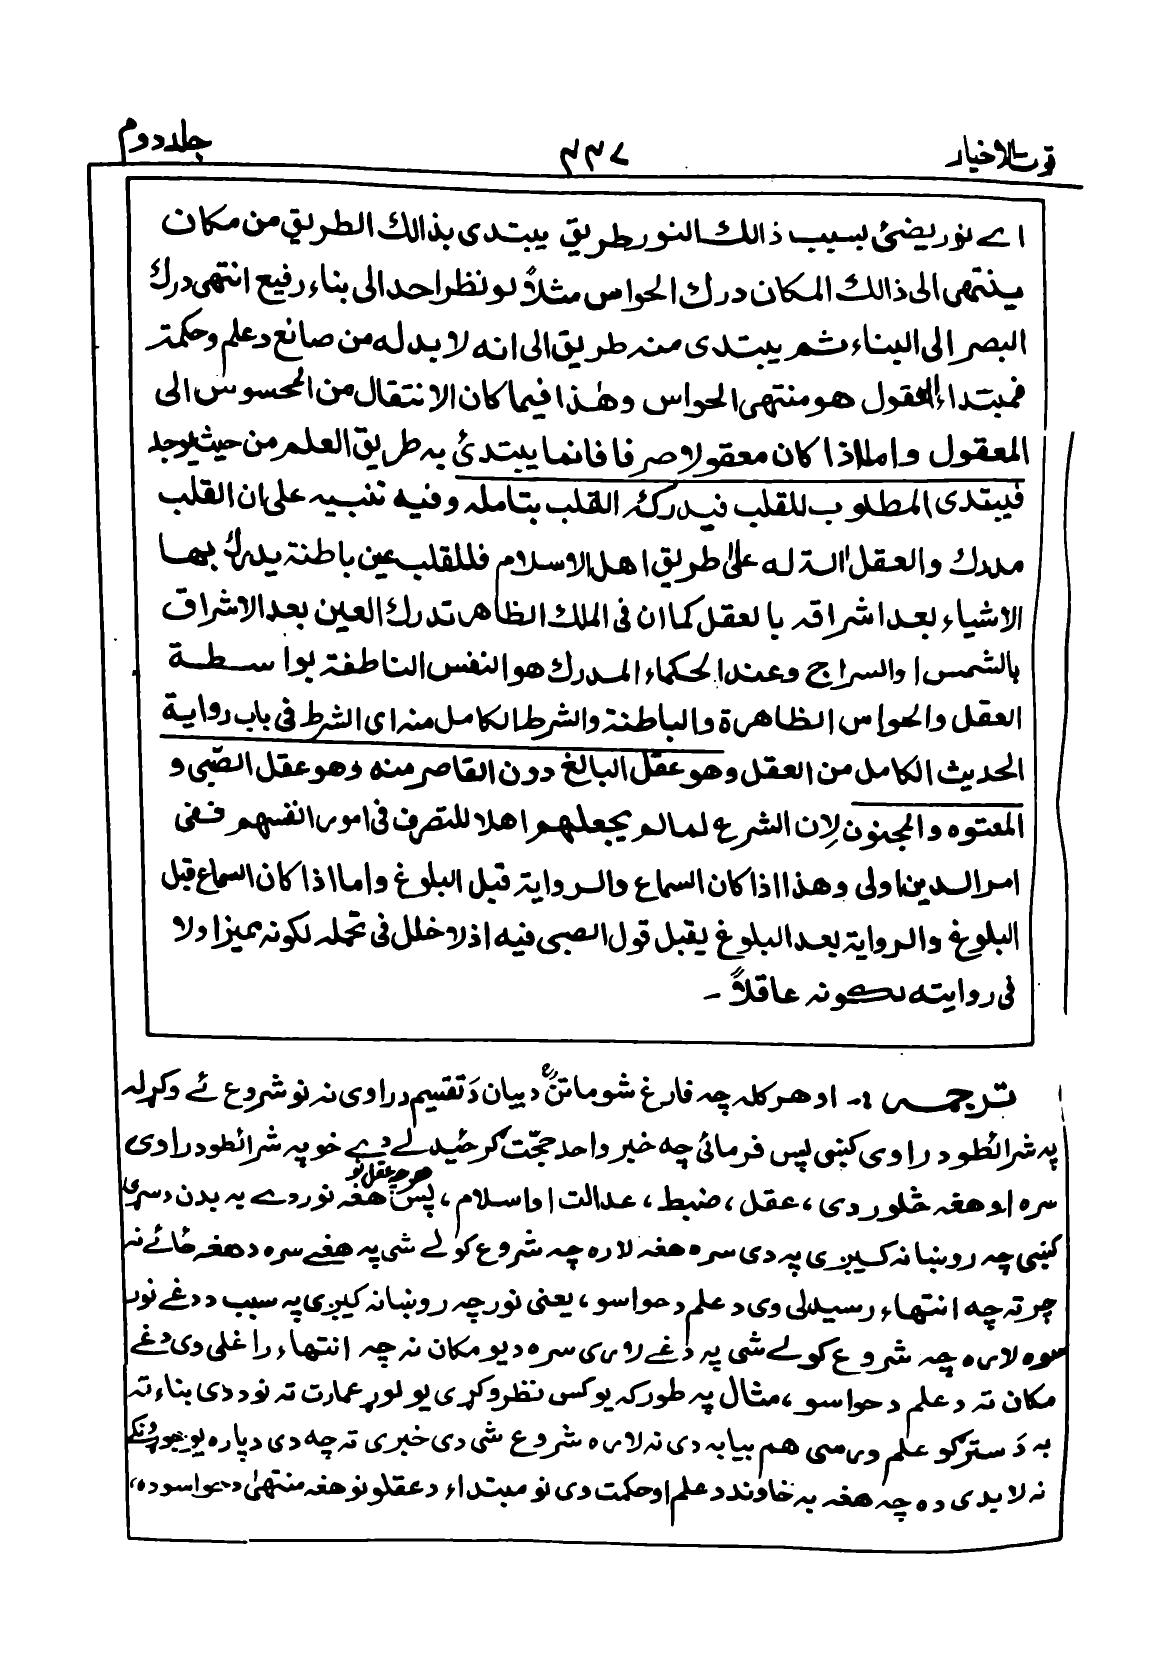 قوت الاخیار ۳۳۷ جلد دوم
اے نور یضئ بسبب ذالك النور طریق یبتدی بذالك الطریق من مکان
ینتهی الی ذالك المکان درك الحواس مثلاً لو نظر احد الی بناء رفیع انتهی درك
البصر الی البناء ثم یبتدی منه طریق الی انه لا بد له من صانع ذ علم وحکمة
فمبتداء العقول هو منتهی الحواس وهٰذا فیما کان الانتقال من المحسوس الی
المعقول واما اذا کان معقولا صرفا فانما یبتدئ به طریق العلم من حیث یوجد
فیبتدی المطلوب للقلب فیدرکه القلب بتامله وفیه تنبیه علی ان القلب
مدرك والعقل اٰلة له علی طریق اهل الاسلام فللقلب عین باطنة یدرك بها
الاشیاء بعد اشراقه بالعقل کما ان فی الملك الظاهر تدرك العین بعد الاشراق
بالشمس او السراج وعند الحکماء المدرك هو النفس الناطقة بواسطة
العقل والحواس الظاهرة والباطنة والشرط الکامل منه ای الشرط فی باب روایة
الحدیث الکامل من العقل وهو عقل البالغ دون القاصر منه وهو عقل الصّبی و
المعتوه والمجنون لِان الشرع لما لم یجعلهم اهلا للتصرف فی امور انفسهم ففی
امر الدین اولی وهذا اذا کان السماع والروایة قبل البلوغ واما اذا کان السماع قبل
البلوغ والروایة بعد البلوغ یقبل قول الصبی فیه اذ لا خلل فی تحمله لکونه ممیزا ولا
فی روایته لکونه عاقلاً ۔
ترجمہ :۔ او هر کله چه فارغ شو ماتنؒ د بیان دَ تقسیم د راوی نہ نو شروع ئے وکړله
په شرائطو د راوی کښی پس فرمائی چه خبر واحد حجّت کرځیدلے دے خو په شرائطو د راوی
سره او هغه څلور دی ، عقل ، ضبط ، عدالت او اسلام ، پس هرچه عقل نو هغه نور دے په بدن د سړی
کښی چه روښانه کیږی په دی سره هغه لاره چه شروع کولے شی په هغے سره د هغه ځائے نہ
چرته چه انتهاء رسیدلی وی د علم د حواسو ، یعنی نور چه روښانه کیږی په سبب د دغے نور
سره لاره چه شروع کولے شی په دغے لاری سره د یو مکان نہ چه انتهاء راغلی وی دغے
مکان ته د علم د حواسو ، مثال په طور که یو کس نظر وکړی یو لوړ عمارت ته نو د دی بناء ته
به دَ سترکو علم ورسی هم بیا به دی نہ لاره شروع شی دی خبری ته چه دی دپاره یو جوړونکے
نہ لابدی ده چه هغه به خاوند د علم او حکمت دی نو مبتداء د عقلو نو هغه منتهیٰ د حواسو ده ،